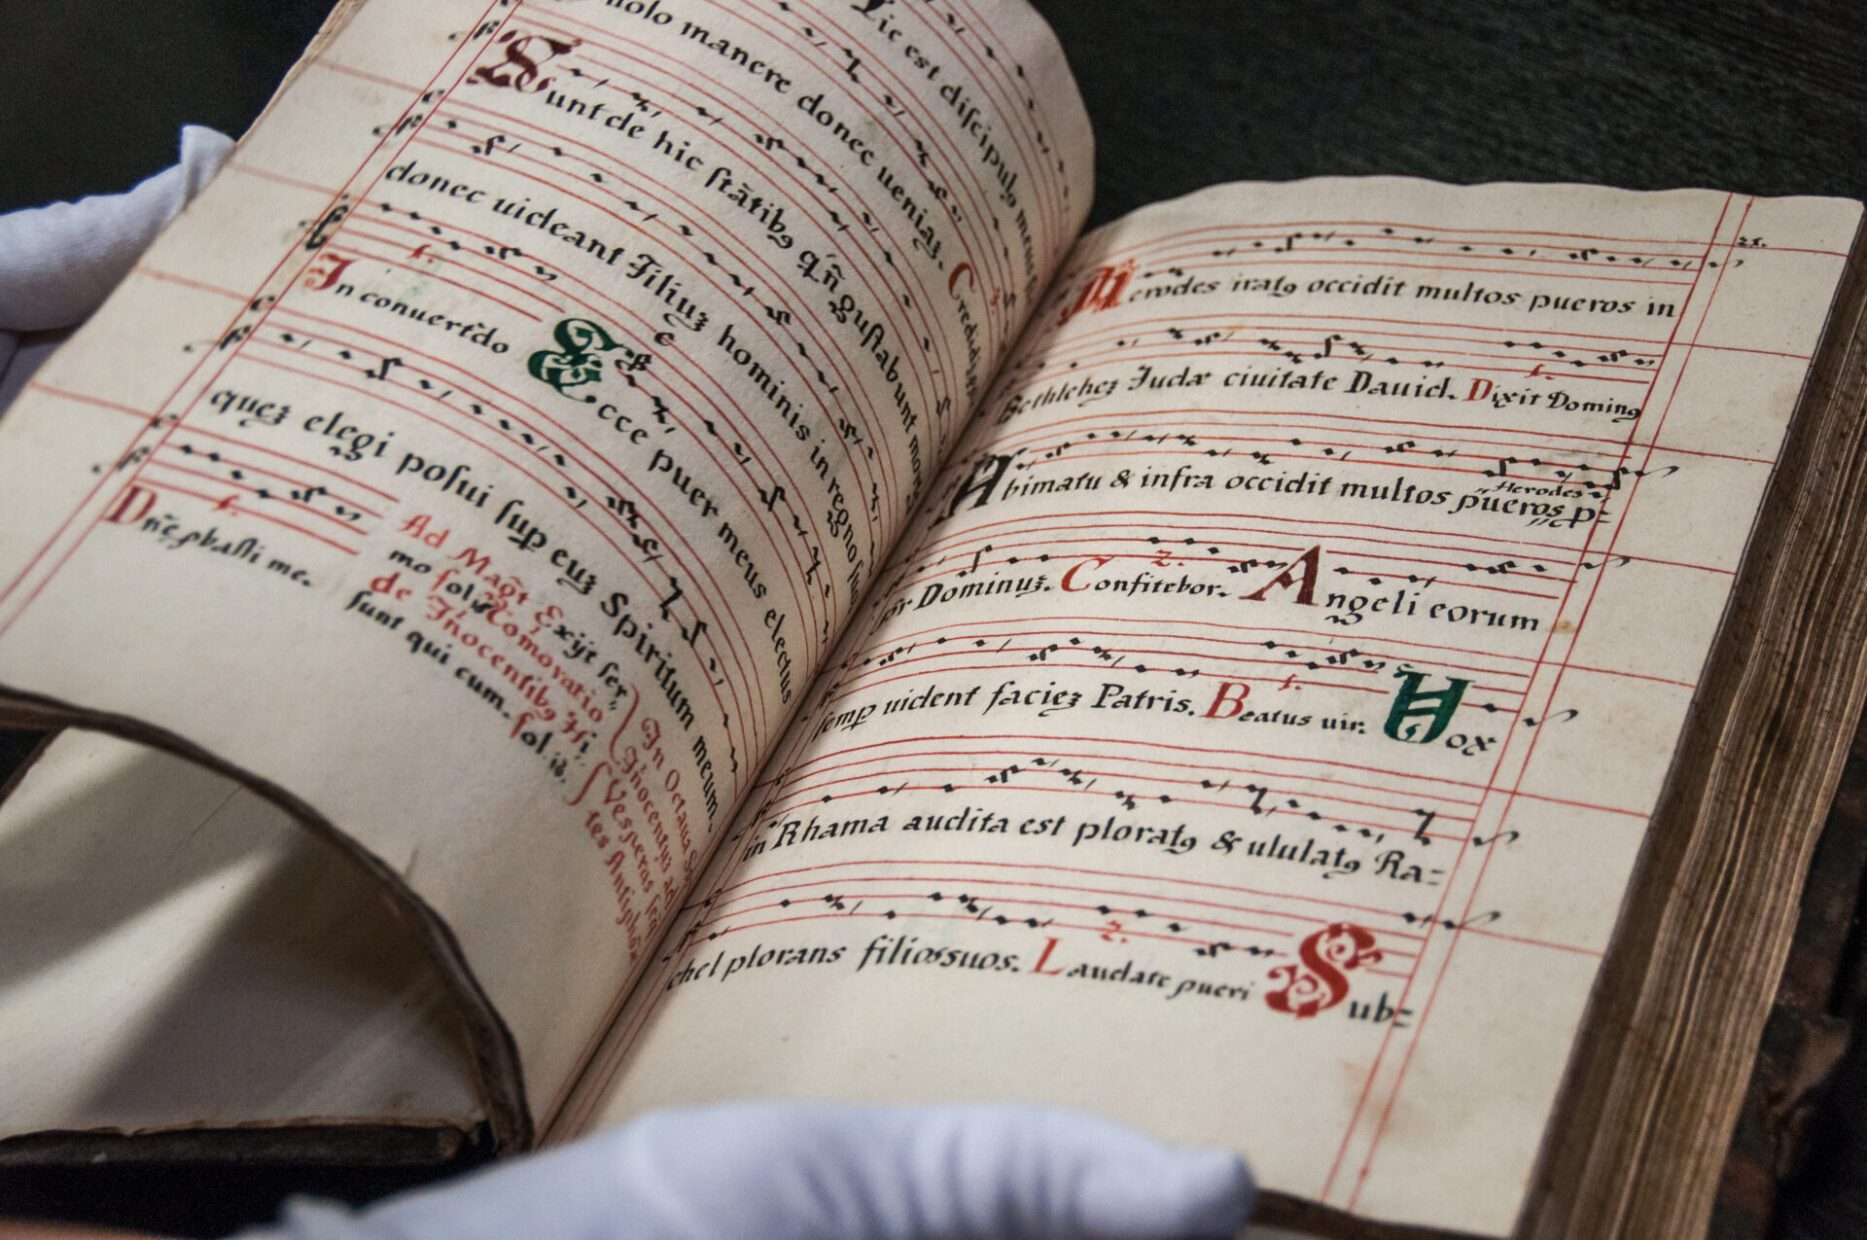 nolo manere donec ueniaʒ. Credidi
ic est discipulꝯ meus
Sunt de hic stātibꝯ qñ gustabunt mortē
donec uideant Filiuʒ hominis in regno suo
In conuertēdo Ecce puer meus electus
queʒ elegi posui sup euʒ Spiritum meum.
Dñe pbasti me.
Ad Magt Exijt ser
mo fol. Comovatio
de Iñocentibꝯ Hi
sunt qui cum. fol. 18.
In Octava S
Iñocentiū ad
Vesperas
tes Antiphōa
25.
Herodes iratꝯ occidit multos pueros in
Bethleheʒ Iudæ ciuitate Dauid. Dixit Dominꝯ
A bimatu & infra occidit multos pueros p=
Herodes
pr Dominuʒ. 2. Confitebor. Angeli eorum
semp uident facieʒ Patris. Beatus uir. Uox
in Rhama audita est ploratꝯ & ululatꝯ Ra=
chel plorans filios suos. 2. Laudate pueri Sub=